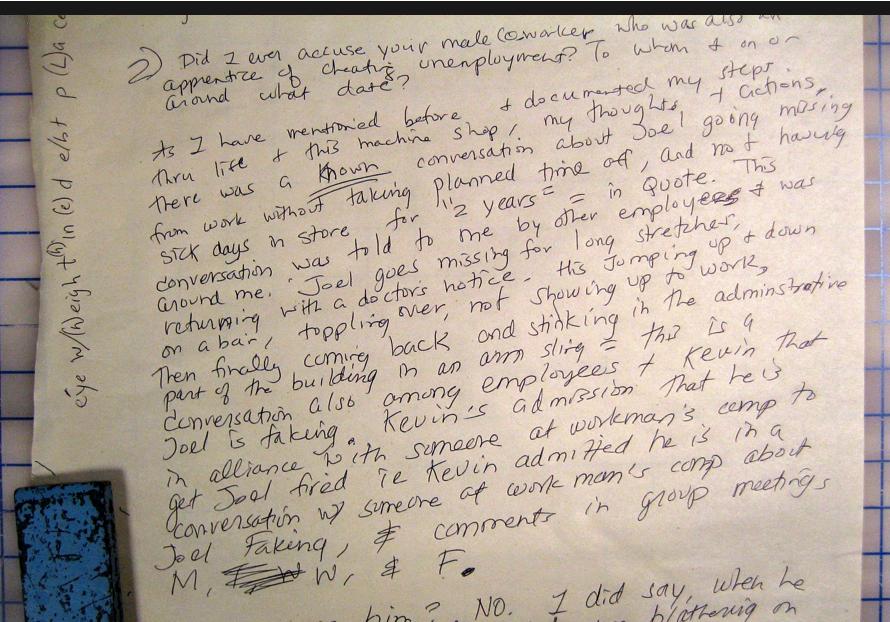 2) Did I ever accuse your male coworker who was also an
apprentice of cheating unemployment? To whom & on or
around what date?
As I have mentioned before & documented my steps
thru life & this machine shop, my thoughts & actions,
there was a known conversation about Joel going missing
from work without taking planned time off, and not having
sick days in store for "2 years" = in Quote. This
conversation was told to me by other employees & was
around me. Joel goes missing for long stretches,
returning with a doctors notice - His Jumping up & down
on a bair, toppling over, not showing up to work,
Then finally coming back and stinking in the adminstrative
part of the building in an arm sling = this is a
conversation also among employees & Kevin that
Joel is faking. Kevin's admission that he is
in alliance with someone at workman's comp to
get Joel fired ie Kevin admitted he is in a
conversation w/ someone at work man's comp about
Joel Faking, & comments in group meetings
M, W, & F.
him? NO. I did say, when he
blathering on
eye w/(h)eight(h) in (e) d e/bt p (L)a ce